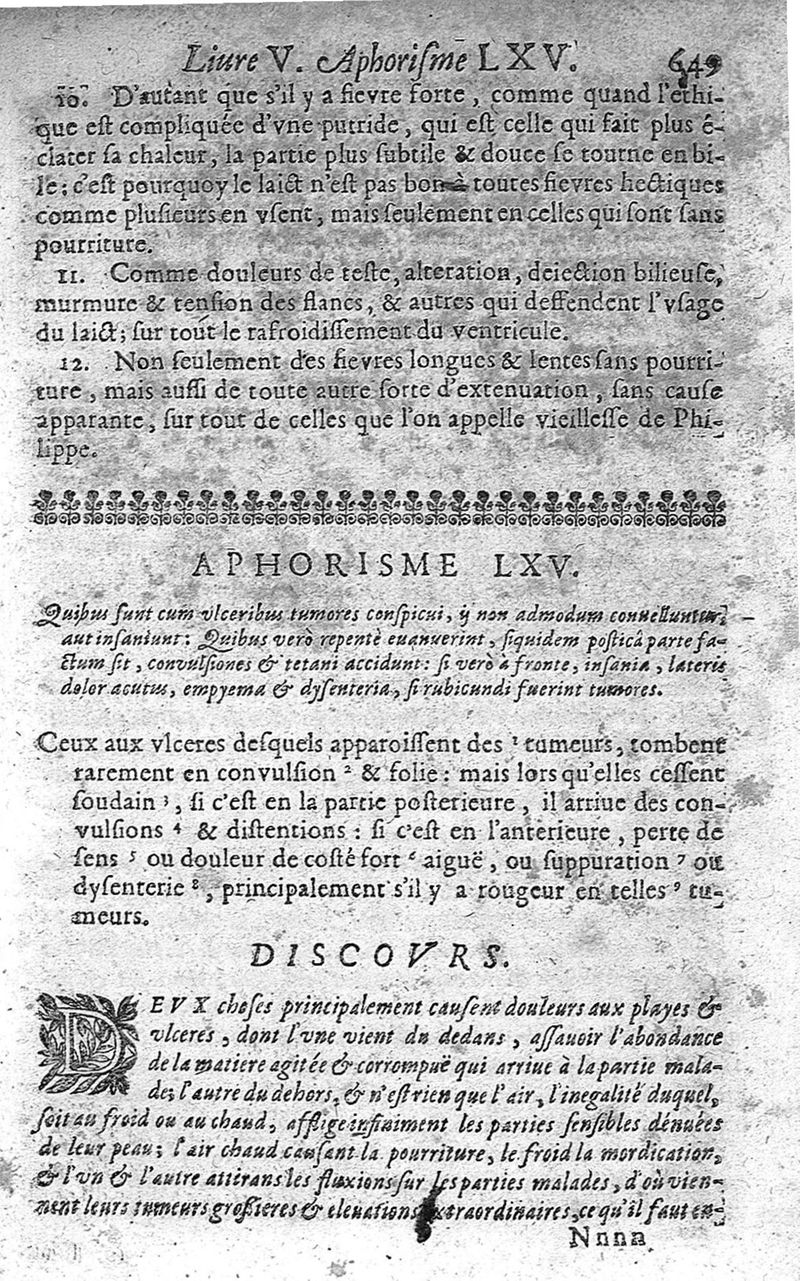 Liure V. Aphorismē LXV. 649
10. D'autant que s'il y a fievre forte, comme quand l'ethi-
que est compliquée d'vne putride, qui est celle qui fait plus é-
clater sa chaleur, la partie plus subtile & douce se tourne en bi-
le; c'est pourquoy le laict n'est pas bon à toutes fievres hectiques
comme plusieurs en vsent, mais seulement en celles qui sont sans
pourriture.
11. Comme douleurs de teste, alteration, deiection bilieuse,
murmure & tension des flancs, & autres qui deffendent l'vsage
du laict; sur tout le rafroidissement du ventricule.
12. Non seulement des fievres longues & lentes sans pourri-
ture, mais aussi de toute autre sorte d'extenuation, sans cause
apparante, sur tout de celles que l'on appelle vieillesse de Phi-
lippe.
APHORISME LXV.
Quibus sunt cum vlceribus tumores conspicui, ij non admodum convelluntur,
aut insaniunt: Quibus verò repentè euanuerint, siquidem posticâ parte fa-
ctum sit, convulsiones & tetani accidunt: si verò à fronte, insania, lateris
dolor acutus, empyema & dysenteria, si rubicundi fuerint tumores.
Ceux aux vlceres desquels apparoissent des 1 tumeurs, tombent
rarement en convulsion 2 & folie: mais lors qu'elles cessent
soudain 3, si c'est en la partie posterieure, il arriue des con-
vulsions 4 & distentions: si c'est en l'anterieure, perte de
sens 5 ou douleur de costé fort 6 aiguë, ou suppuration 7 ou
dysenterie 8, principalement s'il y a rougeur en telles 9 tu-
meurs.
DISCOVRS.
DEVX choses principalement causent douleurs aux playes &
vlceres, dont l'vne vient du dedans, assauoir l'abondance
de la matiere agitée & corrompuë qui arriue à la partie mala-
de; l'autre du dehors, & n'est rien que l'air, l'inegalité duquel,
soit au froid ou au chaud, afflige infiniment les parties sensibles dénuées
de leur peau; l'air chaud causant la pourriture, le froid la mordication,
& l'vn & l'autre attirans les fluxions sur les parties malades, d'où vien-
nent leurs tumeurs grossieres & eleuations extraordinaires, ce qu'il faut en-
Nnnn